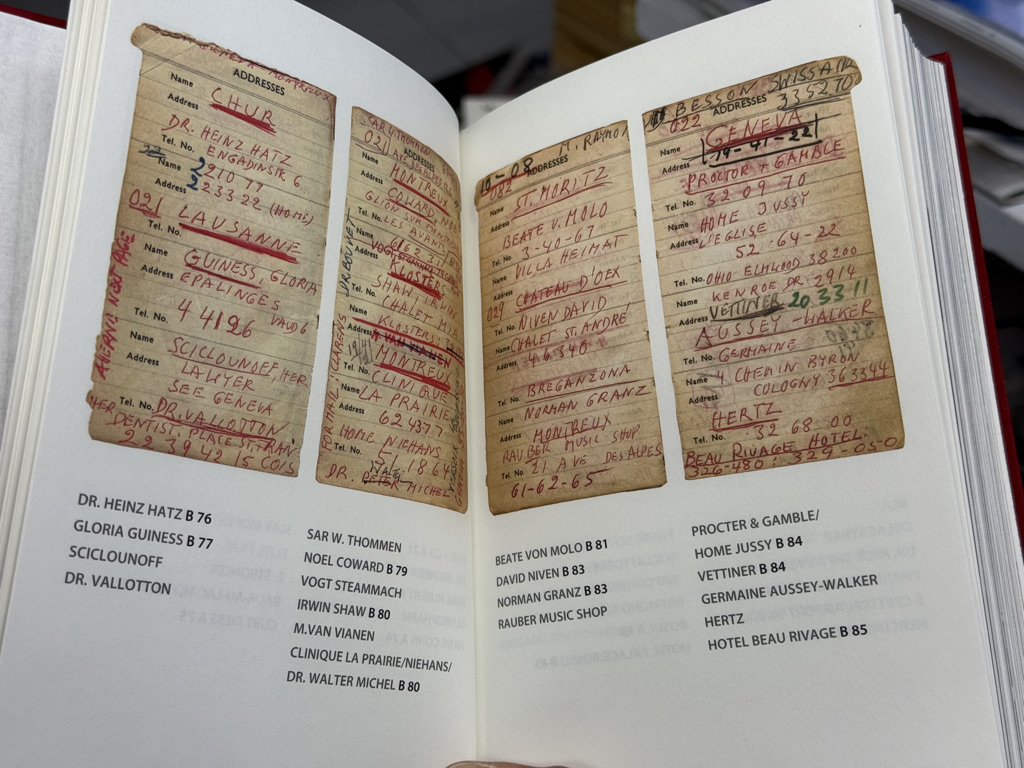 ADDRESSES
Name
CHUR
Address
DR. HEINZ HATZ
ENGADINSTR. 6
Tel. No.
Name
2 210 77
Address
2 233 22 (HOME)
021 LAUSANNE
Tel. No.
Name
GUINESS, GLORIA
Address
EPALINGES
VAUD 6
Tel. No.
4 41 26
Name
SCICLOUNOFF, HER
Address
LAWYER
SEE GENEVA
Tel. No.
DR. VALLOTTON
HER DENTIST, PLACE ST. FRAN.
22 39 42 15 CO/S
ADDRESSES
021
Name
MONTREUX
Address
COWARD, NOEL
GLION SUR
Tel. No.
LES AVANTS
Name
Address
KLOSTERS
SHAW, IRWIN
Tel. No.
CHALET MIA
Name
KLOSTERS
Address
MONTREUX
Tel. No.
CLINIQUE
Name
LA PRAIRIE
Address
62 43 77
HOME NIEHANS
Tel. No.
51 18 64
DR. MICHEL
10-08 M. RAYMO
ADDRESSES
082
Name
ST. MORITZ
Address
BEATE V. MOLO
Tel. No.
3-40-67
Name
VILLA HEIMAT
Address
CHATEAU D'OEX
029
Tel. No.
NIVEN DAVID
Name
CHALET ST. ANDRÉ
Address
4 6 3 40
Tel. No.
BREGANZONA
Name
NORMAN GRANZ
Address
MONTREUX
RAUBER MUSIC SHOP
Tel. No.
21 AVE DES ALPES
61-62-65
BESSON SWISSAIR
ADDRESSES 335270
022
Name
GENEVA
Address
PROCTOR & GAMBLE
Tel. No.
32 09 70
Name
HOME JUSSY
Address
L'EGLISE
52-64-22
Tel. No.
OHIO ELMWOOD 38200
KENROE DR. 2914
Name
VETTINER 20 33 11
Address
AUSSEY-WALKER
Tel. No.
GERMAINE
Name
4 CHEMIN BYRON
Address
COLOGNY 363344
HERTZ
Tel. No.
32 68 00
BEAU RIVAGE HOTEL
326-480 : 329-05-0
DR. HEINZ HATZ B 76
GLORIA GUINESS B 77
SCICLOUNOFF
DR. VALLOTTON
SAR W. THOMMEN
NOEL COWARD B 79
VOGT STEAMMACH
IRWIN SHAW B 80
M.VAN VIANEN
CLINIQUE LA PRAIRIE/NIEHANS/
DR. WALTER MICHEL B 80
BEATE VON MOLO B 81
DAVID NIVEN B 83
NORMAN GRANZ B 83
RAUBER MUSIC SHOP
PROCTER & GAMBLE/
HOME JUSSY B 84
VETTINER B 84
GERMAINE AUSSEY-WALKER
HERTZ
HOTEL BEAU RIVAGE B 85